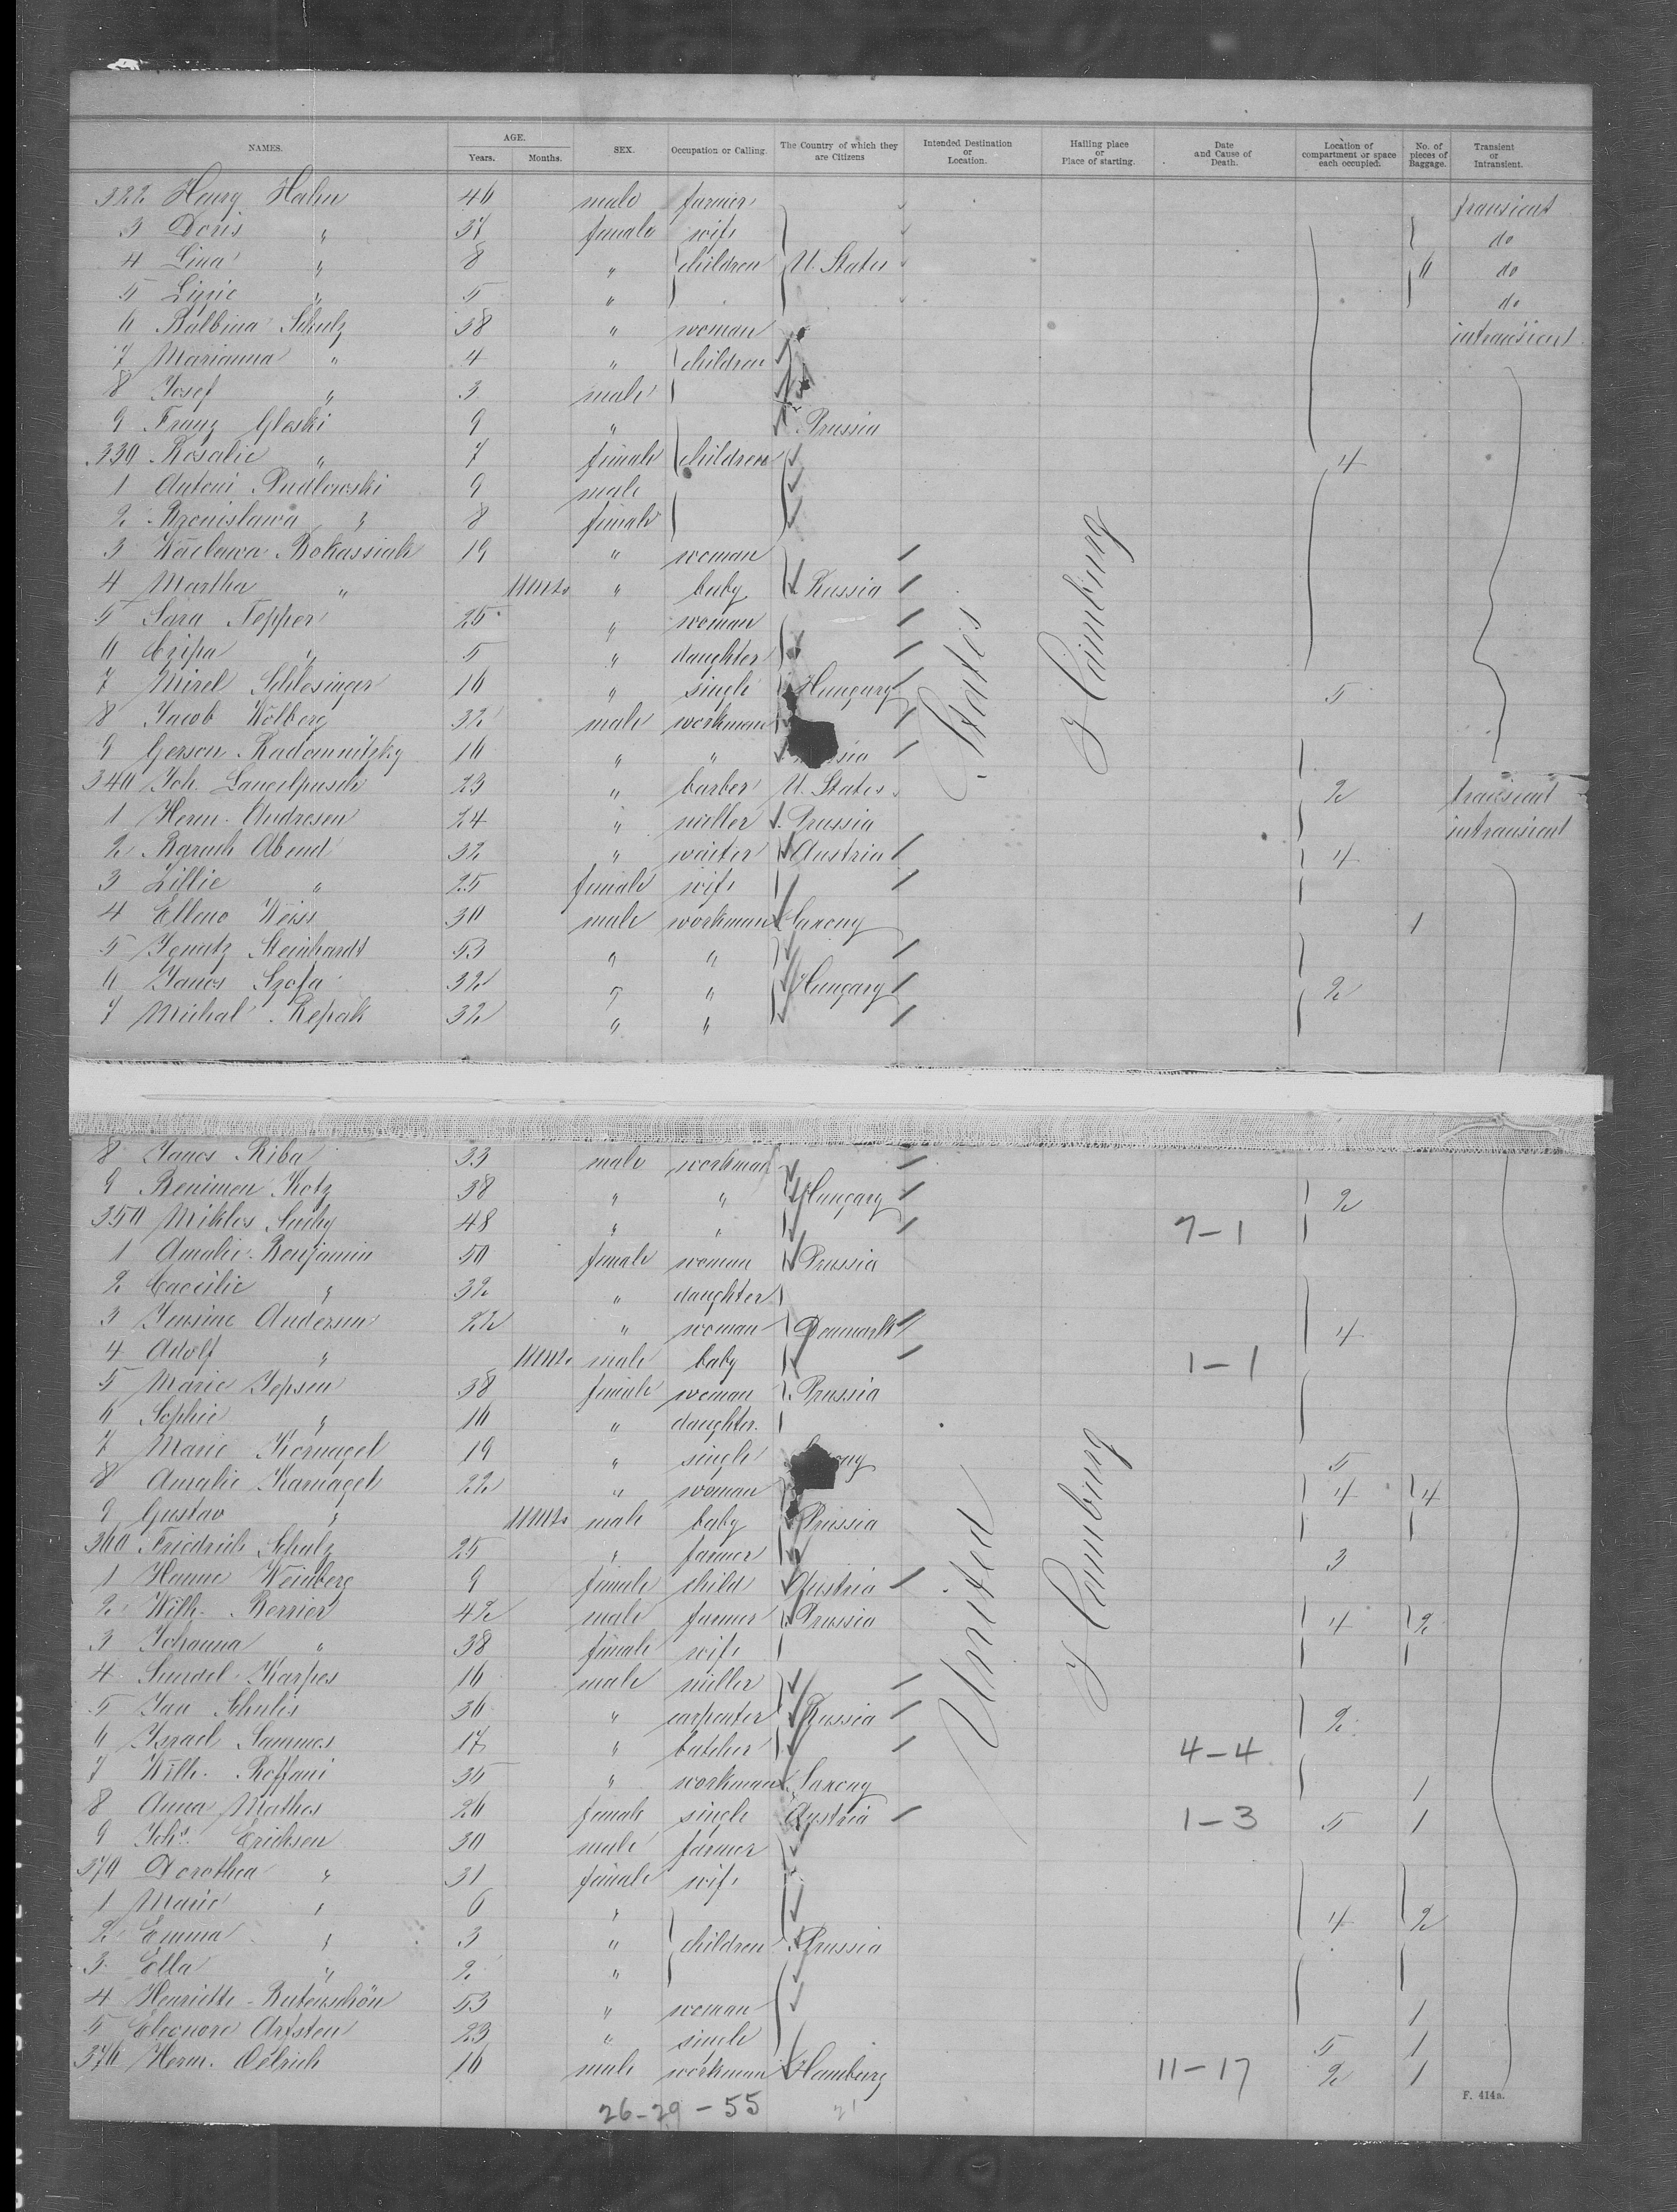 NAMES. AGE. Years. Months. SEX. Occupation or Calling. The Country of which they are Citizens Intended Destination or Location. Hailing place or Place of starting. Date and Cause of Death. Location of compartment or space each occupied. No. of pieces of Baggage. Transient or Intransient.
322 Henry Hahn 46 male farmer transient
3 Doris " 37 female wife do
4 Lina " 8 " children U. States 6 do
5 " 5 " do
6 Balbina Schulz 38 " woman intransient
7 Marianna " 4 " children
8 Josef " 3 male
9 Franz Gloski 9 " Prussia
330 Rosalie " 7 female children 4
1 Antoni Pudlowski 9 male
2 Bronislawa " 8 female
3 Waclawa 19 " woman
4 Martha " 11 mts " baby Russia
5 Sara Tepper 25 " woman
6 " 5 " daughter
7 Mirel Schlesinger 16 " single Hungary 5
8 Jacob Wolberg 32 male workman
9 Gerson Radomnitzky 16 " "
340 Joh. 23 " barber U. States 2 transient
1 Herm. Andresen 24 " miller Prussia intransient
2 Baruch Abend 32 " waiter Austria 4
3 Lillie " 25 female wife
4 Weiss 30 male workman Saxony 1
5 Ignatz Steinhardt 53 " "
6 Janos 32 " " Hungary 2
7 Michal Repak 32 " "
States
Hamburg
8 Janos Riba 33 male workman
9 Kotz 38 " " Hungary 2
350 Miklos 48 " " 7-1
1 Amalie Benjamin 50 female woman Prussia
2 Caecilie " 32 " daughter
3 Jensine Andersen 22 " woman Denmark 4
4 Adolf " 11 mts male baby 1-1
5 Marie Jepsen 38 female woman Prussia
6 Sophie " 16 " daughter
7 Marie Kornagel 19 " single 5
8 Amalie Karnagel 22 " woman 4 4
9 Gustav " 11 mts male baby Prussia
360 Friedrich Schulz 25 " farmer 3
1 Hanne Weinberg 9 female child Austria
2 Wilh. Berrier 42 male farmer Prussia 4 2
3 Johanna " 38 female wife
4 Karpes 16 male miller
5 Jan Schulis 36 " carpenter Russia 2
6 Israel Sammes 17 " butcher 4-4
7 Wilh. Roffani 35 " workman Saxony 1
8 Anna Mathes 26 female single Austria 1-3 5 1
9 Johs. Ericksen 30 male farmer
370 Dorothea " 31 female wife
1 Marie " 6 " 4 2
2 Emma " 3 " children Prussia
3 Ella " 2 "
4 Henriette Rutenschön 53 " woman 1
5 Eleonore Arfsten 23 " single 5 1
376 Herm. Oelrich 16 male workman Hamburg 11-17 2 1
United
Hamburg
26-29-55 21
F. 414a.